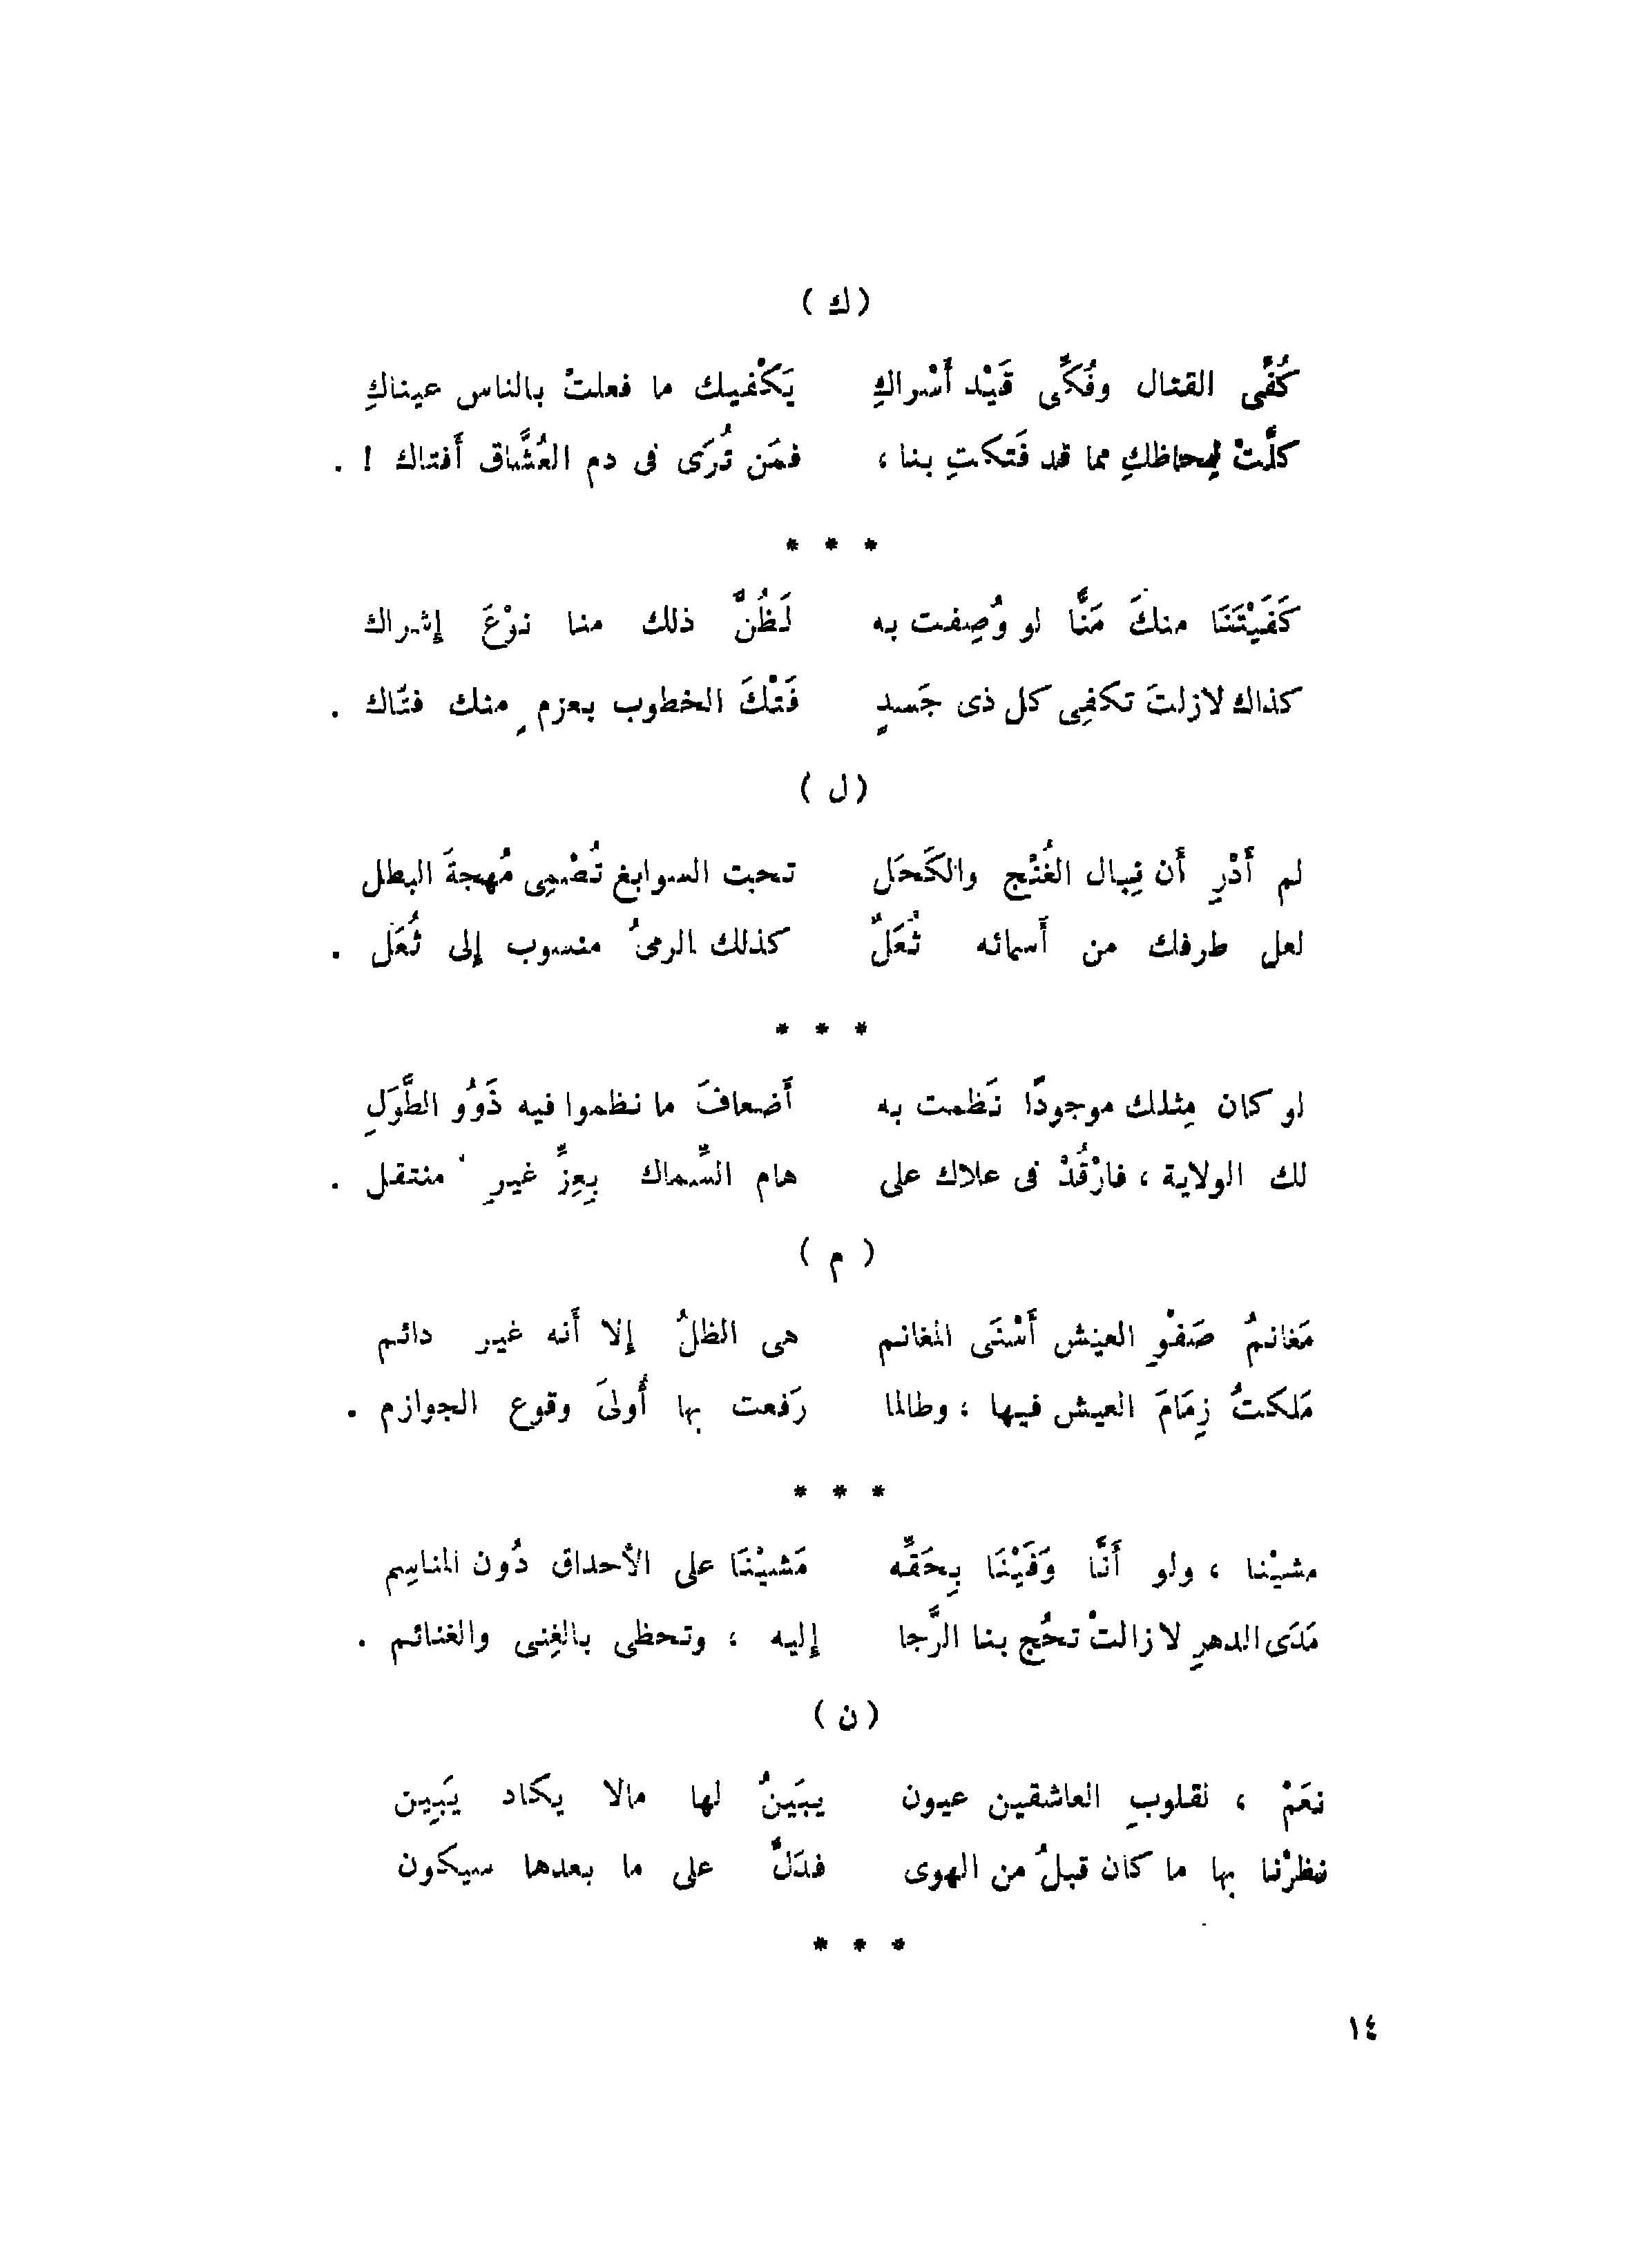 ( ك )
كُفِّى القتال وفُكِّى قَيْد أَسْراكِ يَكْفيك ما فعلتْ بالناس عيناكِ
كلَّتْ لِحاظكِ مما قد فَتكتِ بنا ، فمَن تُرَى فى دم العُشَّاق أَفتاك ! .
* * *
كَفَيْتَنَا منكَ مَنًّا لو وُصِفت به لَظُنَّ ذلك منا نوْعَ إشراك
كذاك لازلتَ تكفِى كل ذى جَسدٍ فَتْكَ الخطوب بعزمٍ منك فتّاك .
( ل )
لم أَدْرِ أَن نِبال الغُنْج والكَحَل تحت السوابغ تُصْمِى مُهجةَ البطل
لعل طرفك من أَسمائه ثُعَلٌ كذلك الرمىُ منسوب إلى ثُعَل .
* * *
لو كان مِثلك موجودًا نَظمت به أَضعافَ ما نظموا فيه ذَوُو الطَّوَلِ
لك الولاية ، فارْقُدْ فى علاك على هام السِّماك بِعِزِّ غيرِ منتقل .
( م )
مَغانمُ صَفْوِ العيش أَسْنَى المغانم هى الظلُ إلا أَنه غير دائم
مَلكتُ زِمَامَ العيش فيها ، وطالما رَفعت بها أُولىَ وقوع الجوازم .
* * *
مشيْنا ، ولو أَنَّا وَفَيْنَا بِحَقِّه مَشيْنَا على الأَحداق دُون المناسِم
مَدَى الدهرِ لا زالتْ تحُج بنا الرَّجا إليه ، وتحظى بالغِنى والغنائم .
( ن )
نعَمْ ، لقلوبِ العاشقين عيون يبَينُ لها مالا يكاد يَبِين
نظرْنا بها ما كان قبلُ من الهوى فدَلَّ على ما بعدها سيكون
* * *
١٤